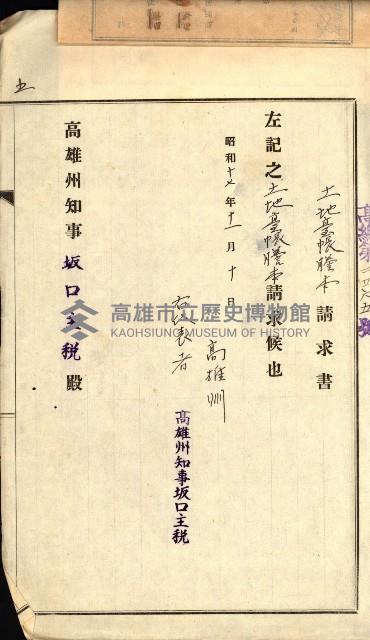 土地臺帳謄本請求書
左記之土地臺帳謄本請求候也
昭和十七年十一月十日
高雄州
右代表者
高雄州知事坂口主税
高雄州知事坂口主税殿
五
高雄市立歷史博物館
KAOHSIUNG MUSEUM OF HISTORY